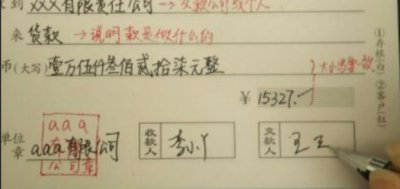 到 XXX有限责任公司 → 交款公司或个人
来 货款 → 说明款是做什么的
币(大写) 壹万伍仟叁佰贰拾柒元整
大小写要一致
¥ 15327.-
①存根(白) ②客户(红)
单位章 aaa有限公司
aaa
公司章
收款人 李小丫
交款人 王王